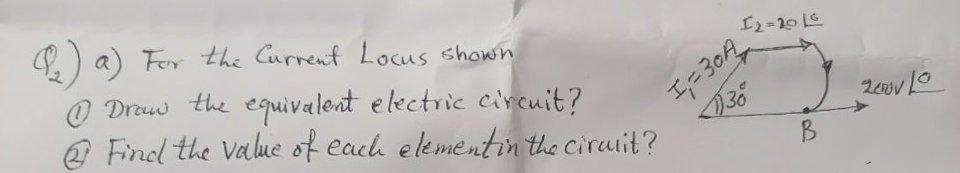 Q2) a) For the Current Locus shown
① Draw the equivalent electric circuit?
② Find the value of each element in the circuit?
I2=20∠0
I1=30A
30°
200V∠0
B